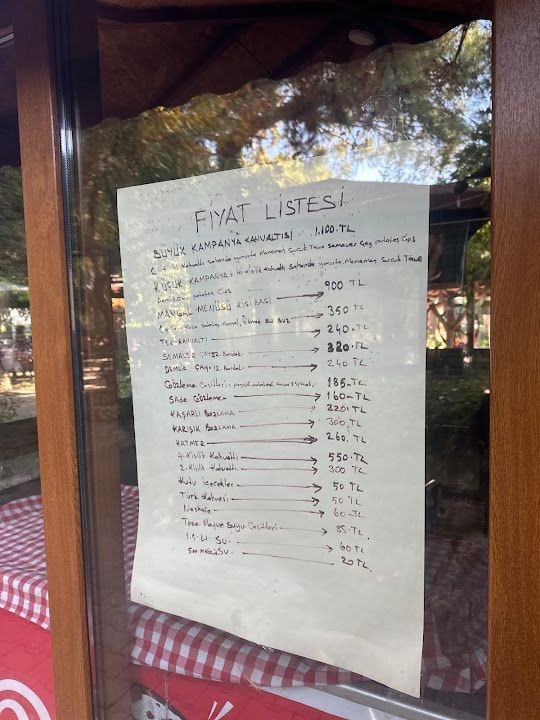 FİYAT LİSTESİ
BÜYÜK KAMPANYA KAHVALTISI 1.100.TL
Kahvaltı Sahanda yumurta Menemen Sucuk Tava Semaver Çay patates Cips
KÜÇÜK KAMPANYA: Kişilik Kahvaltı Sahanda yumurta Menemen Sucuk Tava
patates Cips 900 TL
MANGAL MENÜSÜ KİŞİ BAŞI 350 TL
salata mangal, Ekmek SU BUZ
TEK KAHVALTI 240.TL
SEMAVER ÇAY 22. Bardak 320.TL
DEMLİK ÇAY 12. Bardak 240 TL
Gözleme Çeşitleri: 185.TL
SADE Gözleme 160.TL
KAŞARLI BAZLAMA 220.TL
KARIŞIK BAZLAMA 300.TL
KATMER 260.TL
4. Kişilik Kahvaltı 550.TL
2. Kişilik Kahvaltı 300 TL
Kutu İçecekler 50 TL
Türk Kahvesi 50 TL
Neskafe 60.TL
Taze Meyve Suyu Çeşitleri 85.TL
1.5 Lt SU. 60 TL
500 SU. 20 TL.